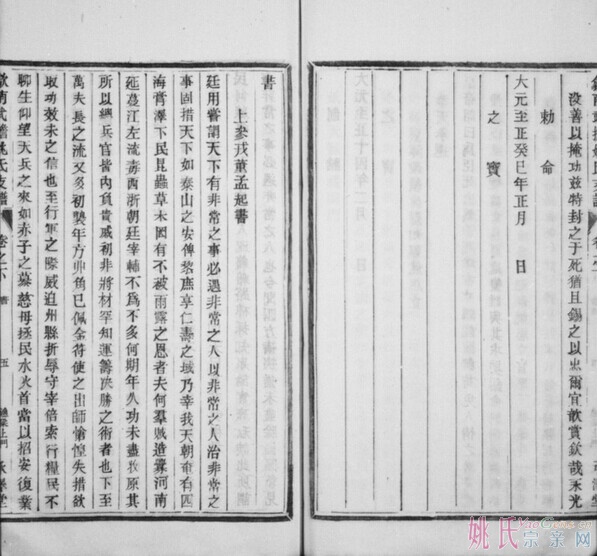 没善以掩功兹特封之于死犹且錫之以忠爾宜歆賞欽哉丕光
勅命
大元至正癸巳年正月　日
之寶
書
上參戎董孟起書
廷用嘗謂天下有非常之事必遇非常之人以非常之人治非常之
事固措天下如泰山之安俾黎庶享仁壽之域乃幸我天朝奄有四
海膏澤下民昆蟲草木固有不被雨露之恩者夫何羣賊造釁河南
延蔓江左流毒西浙朝廷宰輔不為不多何期年久功未盡收原其
所以總兵官皆內負貴戚初非將材罕知運籌決勝之術者也下至
萬夫長之流又多初襲年方丱角已佩金符使之出師愴惶失措欲
取功效未之信也至行軍之際威迫州縣折辱守宰倍索行糧民不
聊生仰望大兵之來如赤子之慕慈母拯民水火首當以招安復業
卷之下
書
五
姚氏宗亲网